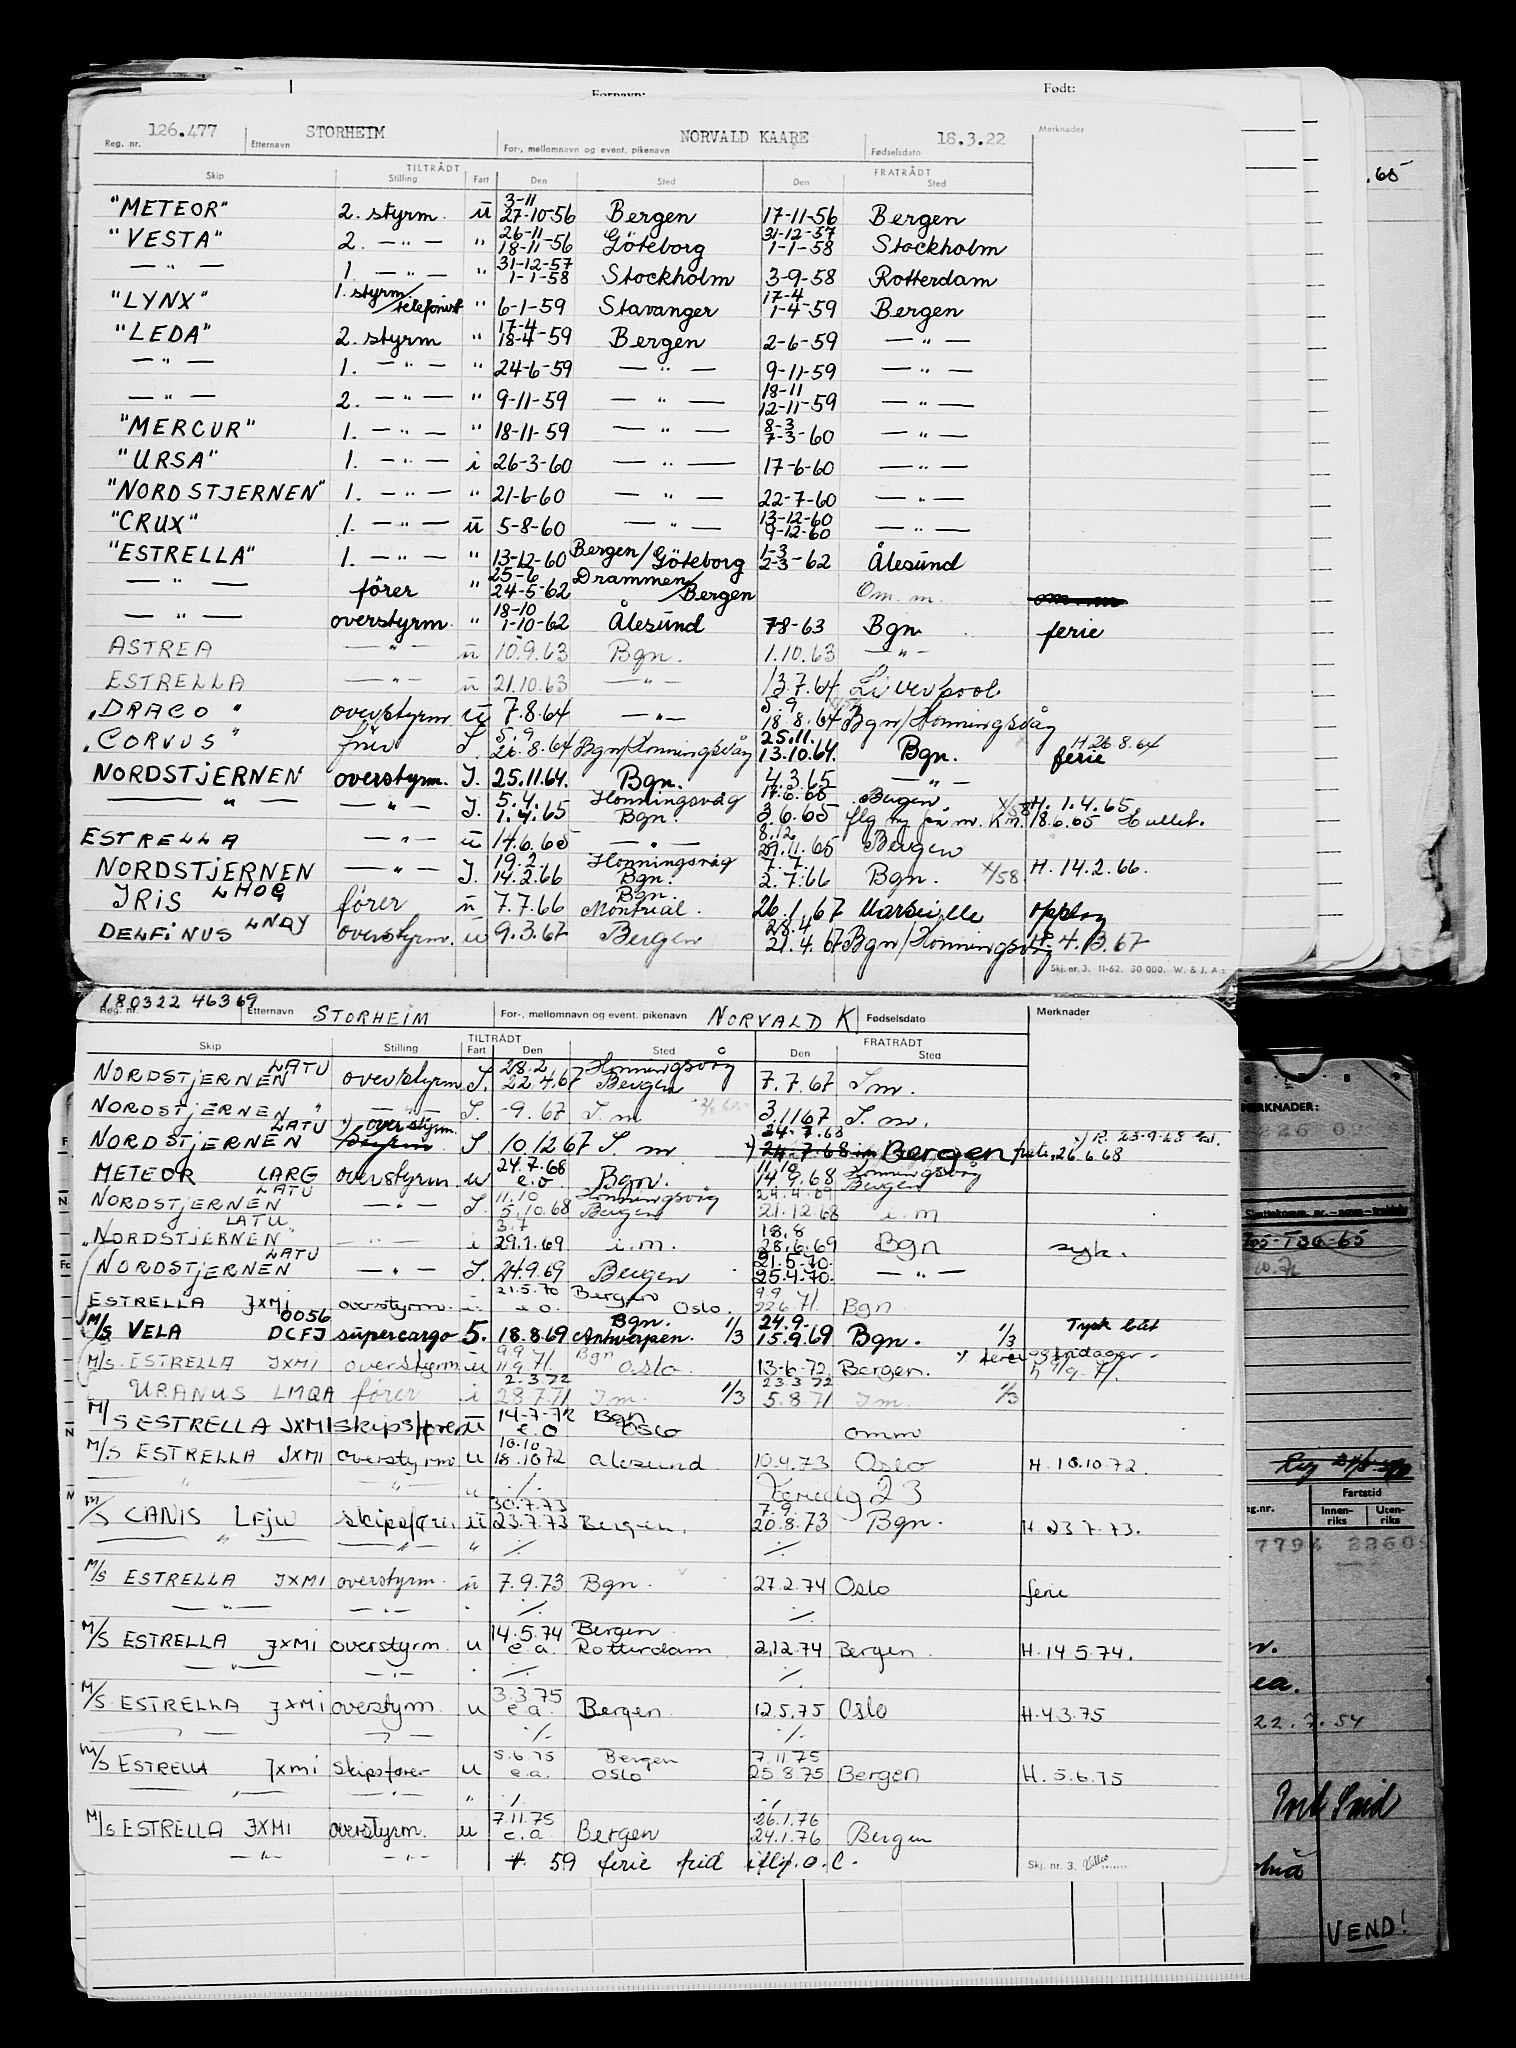 Fornavn: Født:
126.477 STORHEIM NORVALD KAARE 18.3.22 Merknader
Reg. nr. Etternavn For-, mellomnavn og event. pikenavn Fødselsdato
TILTRÅDT FRATRÅDT
Skip Stilling Fart Den Sted Den Sted
3-11
"METEOR" 2. styrm. ū 27-10-56 Bergen 17-11-56 Bergen
26-11 31-12-57
"VESTA" 2. — " — " 18-11-56 Göteborg 1-1-58 Stockholm
31-12-57
— " — 1. — " — " 1-1-58 Stockholm 3-9-58 Rotterdam
17-4
"LYNX" 1. styrm/telefonist " 6-1-59 Stavanger 1-4-59 Bergen
17-4
"LEDA" 2. styrm " 18-4-59 Bergen 2-6-59 — " —
— " — 1. — " — " 24-6-59 — " — 9-11-59 — " —
18-11
— " — 2. — " — " 9-11-59 — " — 12-11-59 — " —
8-3
"MERCUR" 1. — " — " 18-11-59 — " — 7-3-60 — " —
"URSA" 1. — " — i 26-3-60 — " — 17-6-60 — " —
"NORDSTJERNEN" 1. — " — " 21-6-60 — " — 22-7-60 — " —
13-12-60
"CRUX" 1. — " — ū 5-8-60 — " — 9-12-60 — " —
1-3
"ESTRELLA" 1. — " — " 13-12-60 Bergen/Göteborg 2-3-62 Ålesund
25-6
— " — fører " 24-5-62 Drammen/Bergen Om. m.
18-10
— " — overstyrm. " 1-10-62 Ålesund 7-8-63 Bgn. ferie
ASTREA — " — ū 10.9.63 Bgn. 1.10.63 — " —
ESTRELLA — " — ū 21.10.63 — " — 13.7.64 Liverpool
5.9
"DRACO" overstyrm ū 7.8.64 — " — 18.8.64 Bgn/Honningsvåg
5.9 25.11.
"CORVUS" fører I. 26.8.64 Bgn/Honningsvåg 13.10.64. Bgn. H 26 8.64 ferie
NORDSTJERNEN overstyrm. I. 25.11.64. Bgn. 4.3.65 — " —
5.4. Honningsvåg 17.6.65 Bergen
— " — — " — I. 1.4.65 Bgn. 3.6.65 H. 1.4.65 18.6.65
8.12
ESTRELLA — " — ū 14.6.65 — " — 29.11.65 Bergen
19.2. Honningsvåg 7.7.
NORDSTJERNEN — " — I. 14.2.66 Bgn. 2.7.66 Bgn. X/58 H. 14.2.66.
Bgn.
IRIS LHOG fører ū 7.7.66 Montreal. 26.1.67 Marseille opplag
28.4
DELFINUS LNQY overstyrm. ū 9.3.67 Bergen 21.4.67 Bgn/Honningsvåg H. 4.3.67
Skj. nr. 3. 11-62. 30 000. W. & J. A.:
180322 46369
Reg. nr. Etternavn STORHEIM For-, mellomnavn og event. pikenavn NORVALD K. Fødselsdato Merknader
TILTRÅDT FRATRÅDT
Skip Stilling Fart Den Sted Den Sted
28.2 Honningsvåg
NORDSTJERNEN LATU overstyrm I. 22.4.67 Bergen 7.7.67 I m.
NORDSTJERNEN " — " — I. -9.67 I m 3.11 67 I m.
24.7.68
NORDSTJERNEN LATU overstyrm. I 10.12 67 I m Bergen 26.6.68
24.7.68 11.10 Honningsvåg
METEOR LARG overstyrm u e.o. Bgn. 14.9.68 Bergen
11.10 Honningsvåg 24.4.69
NORDSTJERNEN LATU — " — I. 5.10.68 Bergen 21.12.68 i.m
3.7 18.8
"NORDSTJERNEN" LATU — " — i 29.1.69 i.m. 28.6.69 Bgn syk.
21.5.70.
NORDSTJERNEN LATU — " — I. 24.9.69 Bergen 25.4.70. — " —
21.5.70 Bergen 9.9
ESTRELLA JXMI overstyrm. e.o. Oslo. 71. Bgn
0056 Bgn. 24.9.
M/S VELA DCFJ supercargo 5. 18.8.69 Antwerpen. 1/3 15.9.69 Bgn. 1/3 Tysk båt
9.9 71. Bgn
M/S. ESTRELLA JXMI overstyrm ū 11.9 71. Oslo 13-6-72 Bergen.
2.3.72 23.3 72
URANUS LMQA fører i 28.7.71 Im. 1/3 5.8.71 Im. 1/3
14-7-72 Bgn
M/S ESTRELLA JXMI skipsfører ū e.o Oslo omm
10.10
M/S ESTRELLA JXMI overstyrm u 18.10 72 Ålesund 10.4.73 Oslo H. 10.10 72.
" " u ./.
30.7.73 7.9.
M/S CANIS LFJW skipsfører ū 23.7.73 Bergen. 20.8.73 Bgn. H. 23 7 73.
— " — — " — " ./. ./.
M/S ESTRELLA JXMI overstyrm. ū 7.9.73 Bgn. 27.2.74 Oslo ferie
— " — — " — ./. ./.
14.5.74 Bergen
M/S ESTRELLA JXMI overstyrm. u e.a. Rotterdam 2.12.74 Bergen H. 14 5.74.
— " — — " — ./. ./.
3.3.75
M/S ESTRELLA JXMI overstyrm. u e.a. Bergen 12.5.75 Oslo H. 4.3.75
— " — — " — ./. ./.
5.6.75 Bergen 7.11.75
M/S ESTRELLA JXMI Skipsfører u e.a. Oslo 25.8.75 Bergen H. 5.6.75
— " — — " — " ./. ./.
7.11.75 26.1.76
M/S ESTRELLA JXMI overstyrm. u e.a Bergen 24.1.76 Bergen
— " — — " — 59 ferie frid
Skj. nr. 3.
.65
MERKNADER:
T05-T30-65
Fartstid
Innenriks Utenriks
22.7.54
VEND!